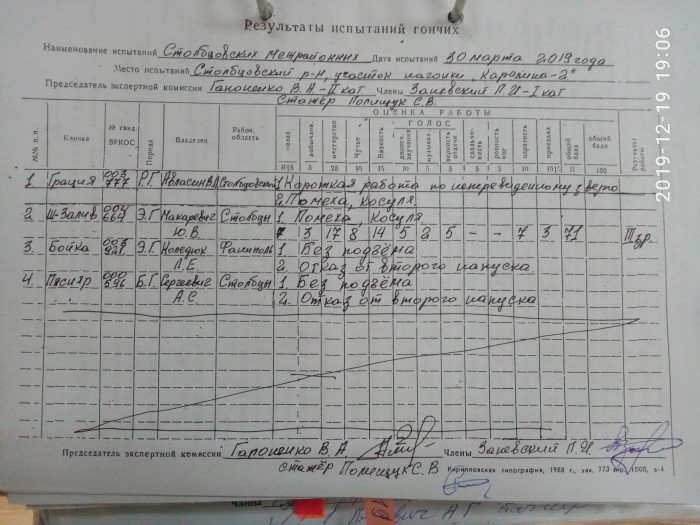 Результаты испытаний гончих
Наименование испытаний Столбцовских межрайонных Дата испытаний 30 марта 2019 года
Место испытаний Столбцовский р-н, участок нагонки „Каролина-2"
Председатель экспертной комиссии Гапоненко В.А-II кат Члены Заневский П.И-I кат
стажёр Полищук С.В.
ОЦЕНКА РАБОТЫ
ГОЛОС
№№ п.п. Кличка № свид. ВРКОС Порода Владелец Район, область добычлив. мастерство Чутьё Вязкость музыкал. верность отдачи ровность ног паратость позывка общий балл общий балл Результат работы
5 25 10 20 10 5 5 5 5 10 5 100
1 Грация 003 777 Р.Г. Столбцовский 1 Короткая работа по неперевиденному зверю
2 Помеха, косуля
2. Ш-Залив 004 664 Э.Г Макаревич Ю.В Столбцы 1. Помеха, Косуля
3 17 8 14 5 2 5 - - 7 3 71
3. Бойка Э.Г. Л.Е 1 Без подъёма
2. Отказ от второго напуска
4 000 596 Б.Г. Сергеевич А.С Столбцы 1. Без подъёма
2. Отказ от второго напуска
Председатель экспертной комиссии Гапоненко В.А Члены Заневский П.И.
стажёр Полищук С.В
Кирилловская типография, 1988 г., зак. 773 тир. 1000, з-4
2019-12-19 19:06
Члены